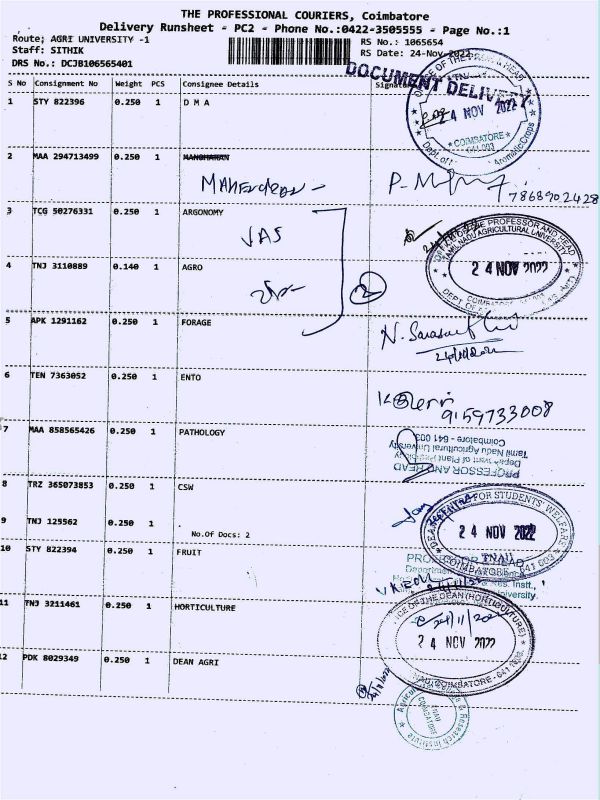 THE PROFESSIONAL COURIERS, Coimbatore
Delivery Runsheet - PC2 - Phone No.:0422-3505555 - Page No.:1
Route: AGRI UNIVERSITY -1
RS No.: 1065654
Staff: SITHIK
RS Date: 24-Nov-2022
DRS No.: DCJB106565401
DOCUMENT DELIVERY
S No Consignment No Weight PCS Consignee Details Signature
1 STY 822396 0.250 1 D M A
24 NOV 2022
COIMBATORE
641 003
Aromatic Crops
2 MAA 294713499 0.250 1 MANOHARAN
7868902428
3 TCG 50276331 0.250 1 ARGONOMY
VAS
THE PROFESSOR AND HEAD
TAMIL NADU AGRICULTURAL UNIVERSITY
24 NOV 2022
4 TNJ 3110889 0.140 1 AGRO
2
5 APK 1291162 0.250 1 FORAGE
6 TEN 7363052 0.250 1 ENTO
9159733008
7 MAA 858565426 0.250 1 PATHOLOGY
PROFESSOR AND HEAD
Department of Plant Pathology
Tamil Nadu Agricultural University
Coimbatore - 641 003
8 TRZ 365073853 0.250 1 CSW
FOR STUDENTS' WELFARE
24 NOV 2022
TNAU
COIMBATORE - 641 003
9 TNJ 125562 0.250 1 .
No.Of Docs: 2
10 STY 822394 0.250 1 FRUIT
11 TNJ 3211461 0.250 1 HORTICULTURE
OFFICE OF THE DEAN (HORTICULTURE)
24/11/2022
24 NOV 2022
TNAU, COIMBATORE - 641 003
12 PDK 8029349 0.250 1 DEAN AGRI
TNAU
COIMBATORE
Research Institute